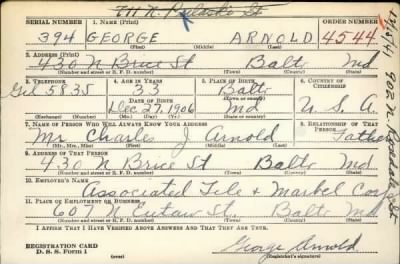 711 N. Pulaski St
SERIAL NUMBER 1. NAME (Print) ORDER NUMBER
394 GEORGE ARNOLD 4544
(First) (Middle) (Last)
2. ADDRESS (Print)
430 N Bruce St Balto Md
(Number and street or R. F. D. number) (Town) (County) (State)
3. TELEPHONE 4. AGE IN YEARS 5. PLACE OF BIRTH 6. COUNTRY OF CITIZENSHIP
Gil 5835 33 Balto
DATE OF BIRTH (Town or county)
Dec 27, 1906 Md U. S. A.
(Exchange) (Number) (Mo.) (Day) (Yr.) (State or country)
7. NAME OF PERSON WHO WILL ALWAYS KNOW YOUR ADDRESS 8. RELATIONSHIP OF THAT PERSON
Mr. Charles J Arnold Father
(Mr., Mrs., Miss) (First) (Middle) (Last)
9. ADDRESS OF THAT PERSON
430 N Bruce St Balto Md
(Number and street or R. F. D. number) (Town) (County) (State)
10. EMPLOYER'S NAME
Associated Tile & Marbel Corp
11. PLACE OF EMPLOYMENT OR BUSINESS
607 N Eutaw St. Balto Md
(Number and street or R. F. D. number) (Town) (County) (State)
I AFFIRM THAT I HAVE VERIFIED ABOVE ANSWERS AND THAT THEY ARE TRUE.
REGISTRATION CARD
D. S. S. Form 1
George Arnold
(Registrant's signature)